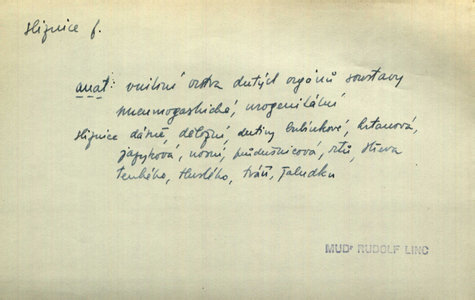 sliznice f.
anat: vnitřní vrstva dutých orgánů soustavy
pneumogastrické, urogenitální
sliznice dásně, děložní, dutiny bubínkové, hrtanová,
jazyková, nosní, průdušnicová, rtů, střeva
tenkého, tlustého, tváří, žaludku
MUDr RUDOLF LINC